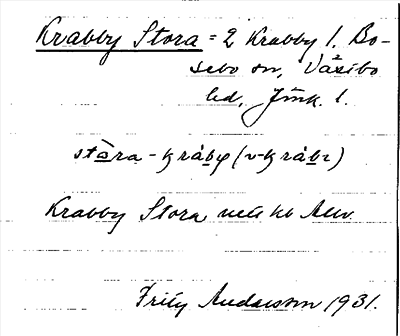 Krabby Stora = 2 Krabby 1. Bo-
sebo sn, Västbo
hd, Jönk. l.
stòra - kráby (v-kráby)
Krabby Stora
Fritz Andersson 1931.